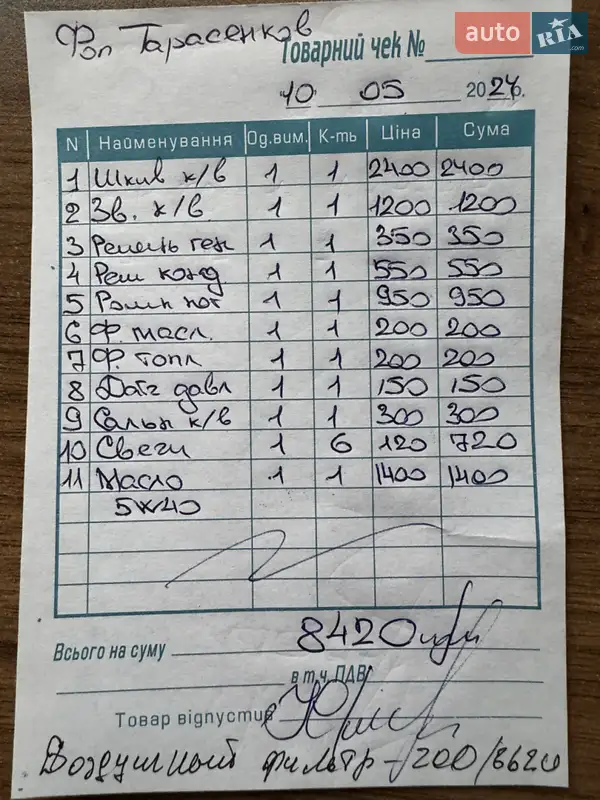 Фоп Тарасенков
auto RIA.com
Товарний чек №
10 05 2024р.
N Найменування Од.вим. К-ть Ціна Сума
1 Шкив к/в 1 1 2400 2400
2 Зв. к/в 1 1 1200 1200
3 Ремень ген 1 1 350 350
4 Рем конд 1 1 550 550
5 Ролик нат 1 1 950 950
6 Ф. масл. 1 1 200 200
7 Ф. топл 1 1 200 200
8 Датч давл 1 1 150 150
9 Сальн к/в 1 1 300 300
10 Свечи 1 6 120 720
11 Масло 1 1 1400 1400
5W40
Всього на суму 8420
в т.ч. ПДВ
Товар відпустив
Воздушный фильтр - 200/8620